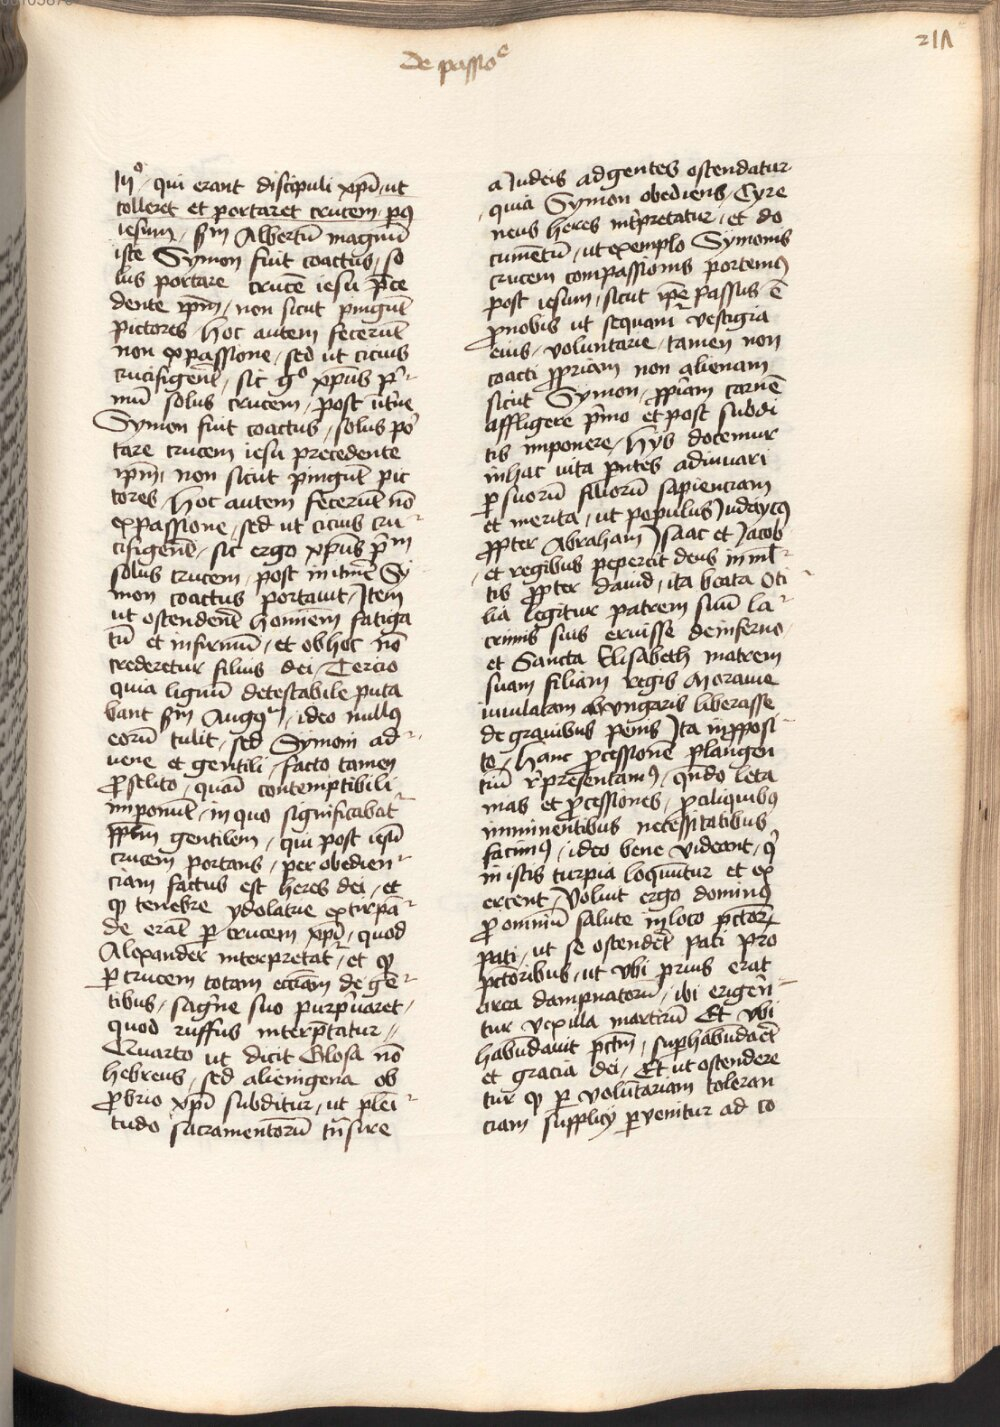 de passioe
211
iijo qui erant discipuli xpi ut
tolleret et portaret crucem pq
iesum sm Albertū magnū
iste Symon fuit coactus so
lus portare crucē iesu p̄ce
dente ip̄m non sicut pingūt
pictores Hoc autem fecerūt
non ex passione sed ut cicius
crucifigerēt sic go xp̄us p̄
mū solus crucem post
Symon fuit coactus solus po
tare crucem iesu precedente
ip̄m non sicut pingūt pic
tores Hoc autem fecerūt nō
ex passione sed ut cicius cru
cifigerēt sic ergo xp̄us p̄m
solus crucem post in itinē Sy
mon coactus portauit Item
ut ostenderēt hominem fatiga
tū et infirmū et ob hoc nō
crederetur filius dei Tercio
quia lignū detestabile puta
bant sm Augqm ideo nullq
eorū tulit sed Symoni ad
uene et gentili facto tamen
p̄selito quasi contemptibili
imponūt in quo significabat
pp̄lm gentilem qui post iesū
crucem portans per obedien
ciam factus est heres dei et
q tenebre ydolatrie extirpā
de erāt p crucem xp̄i quod
Alexander interpretat et q
p crucem totam ecc̄iam de gē
tibus sagīne suo purpuraret
quod ruffus interp̄tatur
Quarto ut dicit Glosa nō
hebreus sed alienigena ob
p̄brio xp̄i subditur ut plēi
tudo sacramentorū trn̄sire
a Iudeis ad gentes ostendatur
quia Symon obediens Cyre
neus heres int̄pretatur et do
cumētū ut exemplo Symonis
crucem compassionis portemq
post iesum sicut ip̄e passus ē
p̄nobis ut sequamr vestigia
eius voluntarie tamen non
coacti pp̄riam non alienam
sicut Symon pp̄iam carnē
affligere p̄mo et post subdi
tis imponere Hys docemur
in hac uita p̄ntes adiuuari
p suorū filiorū sapienciam
et merita ut populus Iudaycq
pp̄ter Abraham Isaac et Iacob
et regibus pepercit deus in ml̄
tis pp̄ter dauid ita beata Oti
lia legitur patrem suū la
crimis suis eruisse de inferno
et Sancta Elisabeth matrem
suam filiam regis Morauie
iugulatam ab vngaris liberasse
de grauibus penis Ita in pposi
to Hanc p̄cessione plangen
tiū rp̄resentamq qn̄do leta
nias et p̄cessiones p aliquibq
imminentibus necessitatibus
facimq ideo bene videant q
in istis turpia loquūtur et ex
ercent Voluit ergo dominq
p omniū salute in loco pc̄tor
pati ut se ostendēt pati pro
pc̄toribus ut vbi prius erat
area dampnatorū ibi erigen̄
tur vexilla martirū Et vbi
habundauit pc̄tm suphabūdaēt
et gracia dei Et ut ostendere
tur q p voluntariam toleran
ciam supplicij p̄venitur ad co